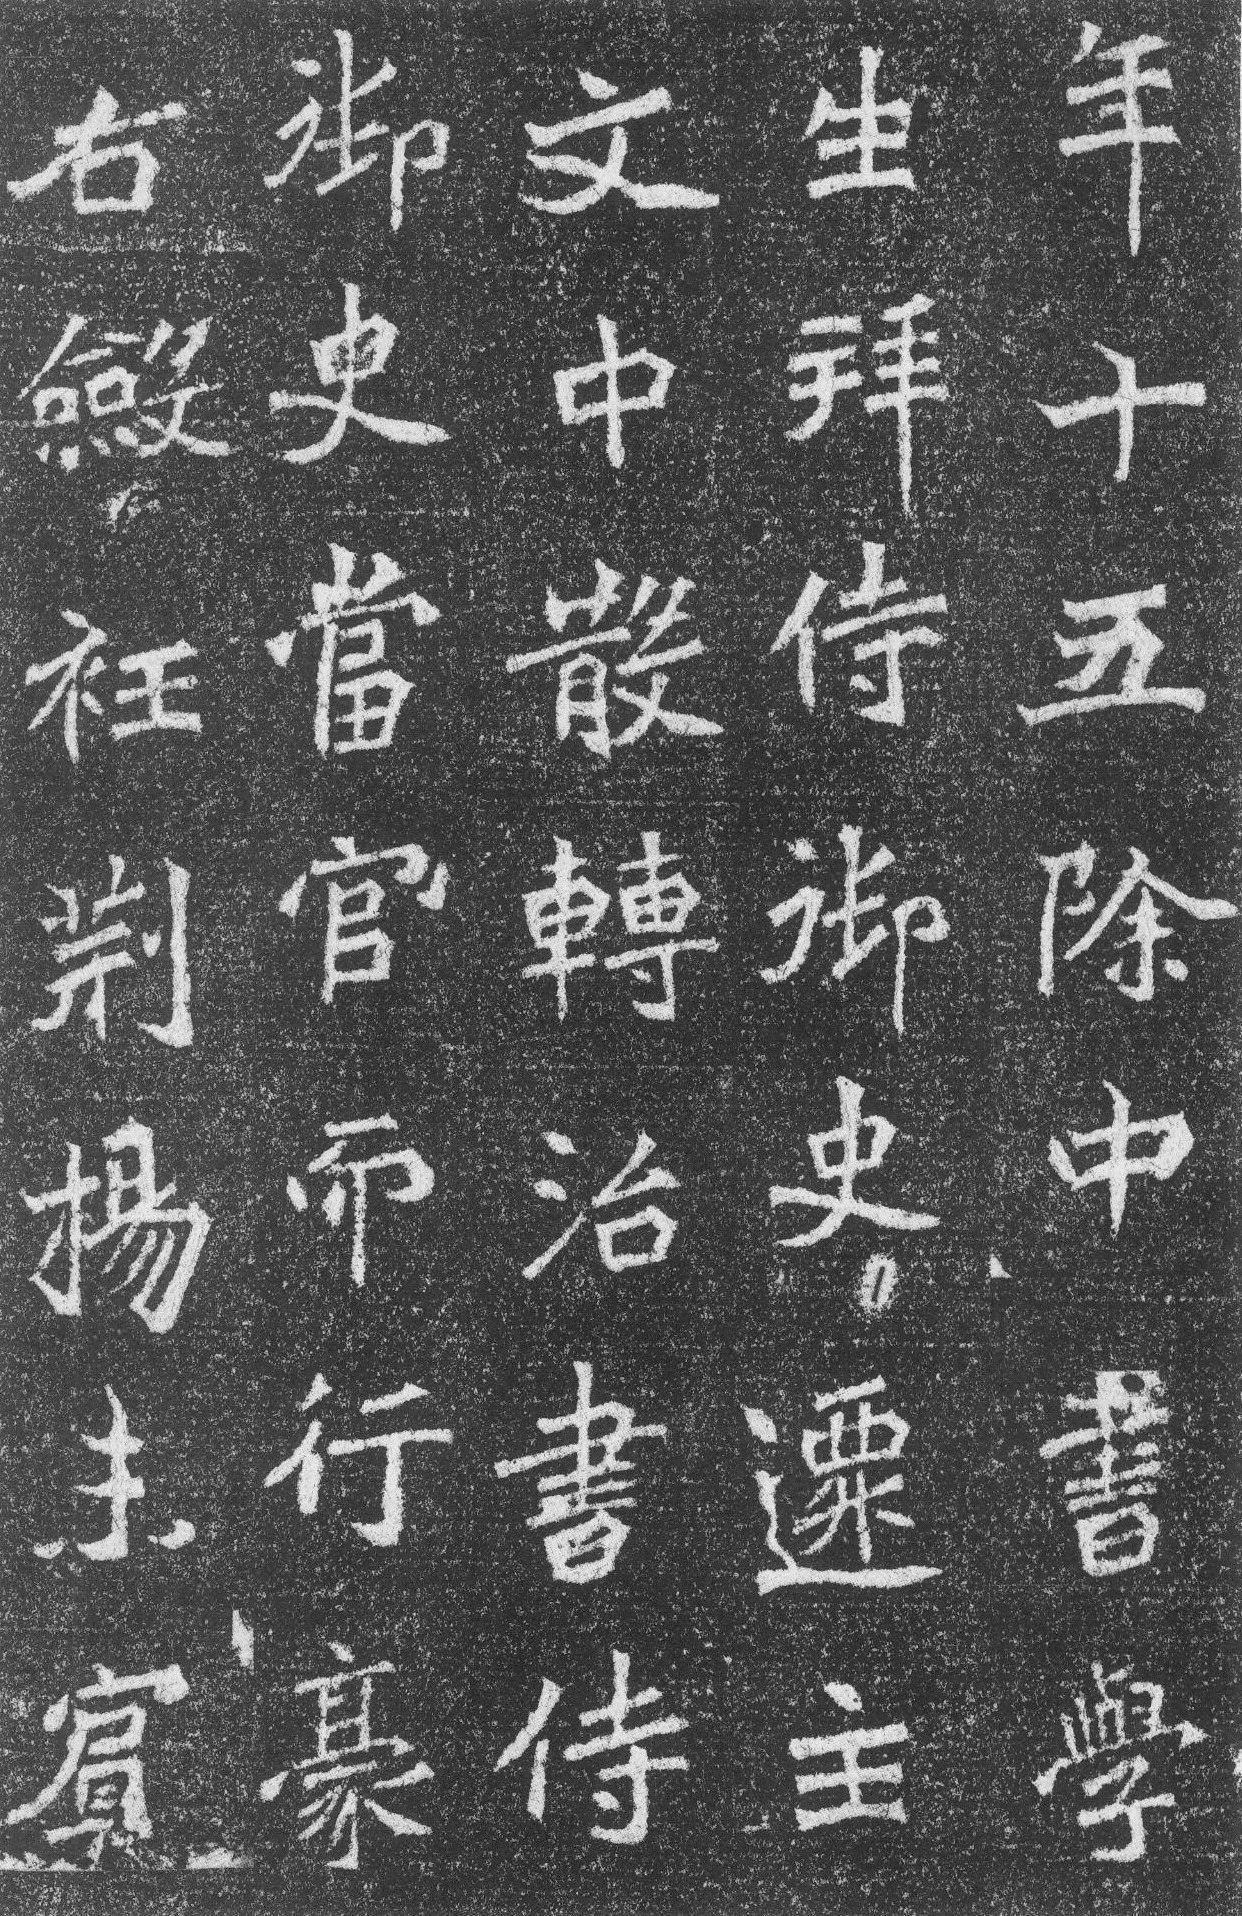 年十五除中書學
生拜侍御史遷主
文中散轉治書侍
御史當官而行豪
右斂衽荊揚未賓